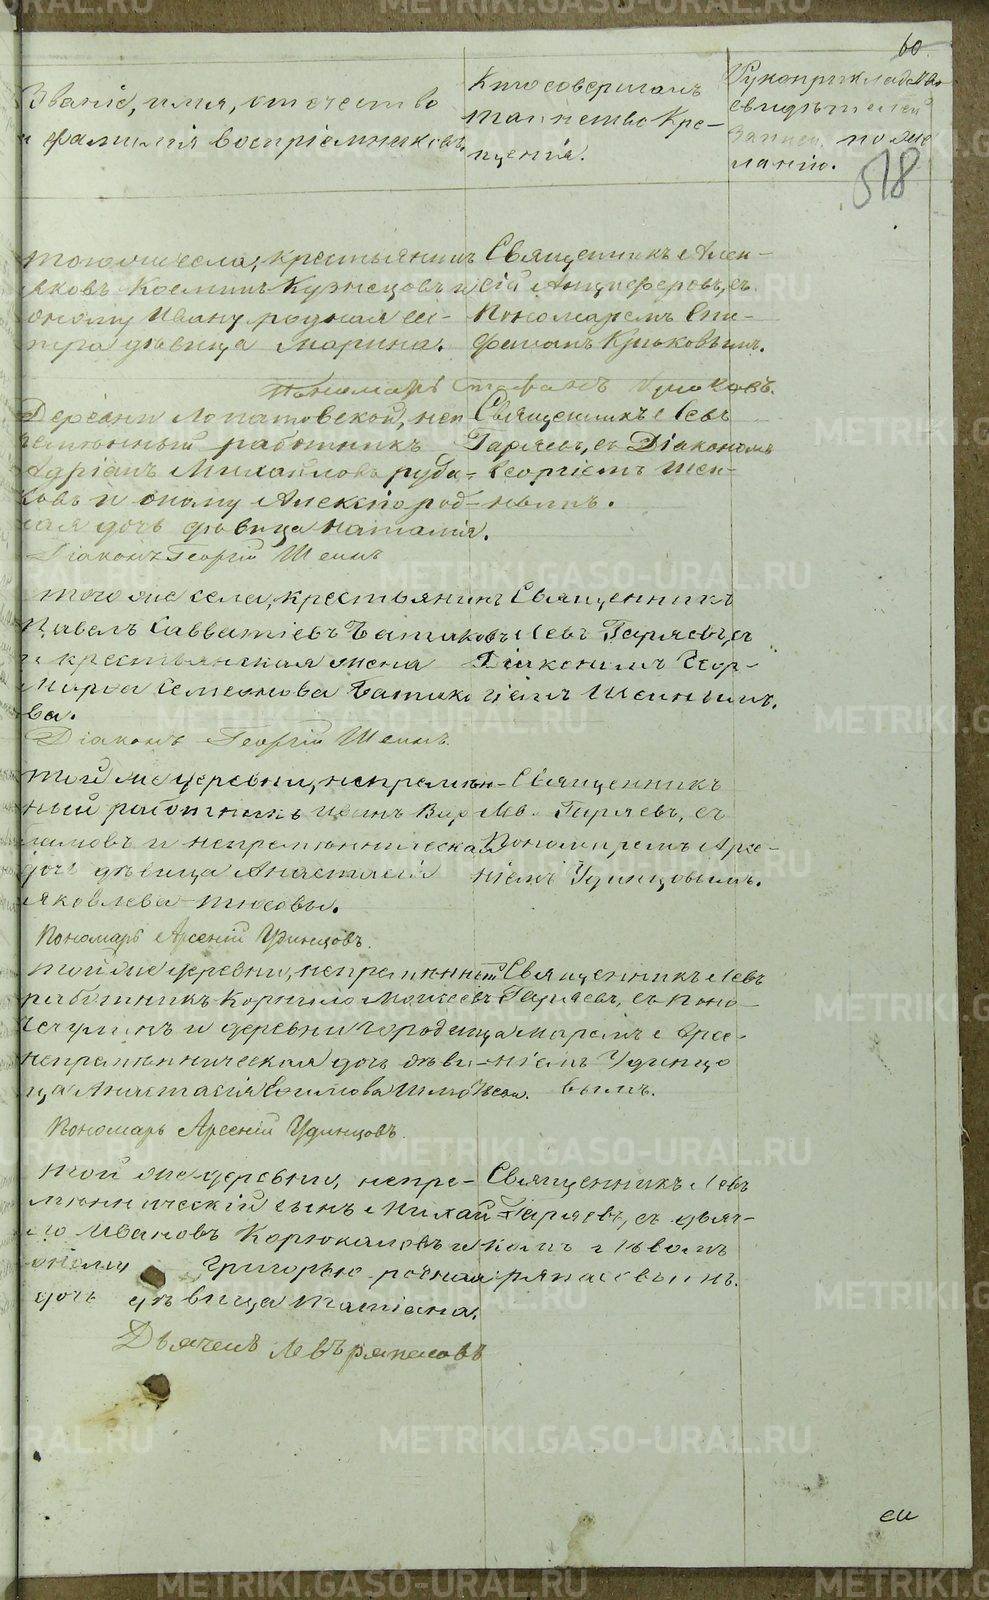 60
Званіе, имя, отчество
и фамилія воспріемниковъ
Кто совершалъ
таинство Кре-
щенія.
Рукоприкладство
свидѣтелей
записи по же
ланію.
518
тогоже села, крестьянинъ
Яковъ Козминъ Кузнецовъ и
оному Ивану родная се-
стра дѣвица Марина.
Священникъ Алек-
сій Анциферовъ, съ
Пономаремъ Сте-
фаномъ Крюковымъ.
Пономарь Стефанъ Крюковъ.
Деревни Лопатовской, неп
ременный работникъ
Адріанъ Михайловъ
и оному Алексію род-
ная дочь дѣвица Наталія.
Священникъ Левъ
Гаряевъ, съ Діакономъ
Георгіемъ Шеи-
нымъ.
Діаконъ Георгій Шеинъ
тогоже села, крестьянинъ
Павелъ Савватіевъ Батиковъ
и крестьянская жена
Марѳа Семенова Батико
ва.
Священникъ
Левъ Гаряевъ, съ
Діакономъ Геор-
гіемъ Шеинымъ.
Діаконъ Георгій Шеинъ
той же деревни, непремѣн-
ный работникъ
и непремѣнническая
дочь дѣвица Анастасія
Яковлева
Священникъ
Лев. Гаряевъ, съ
Пономаремъ Арсе-
ніемъ Удинцовымъ.
Пономарь Арсеній Удинцовъ.
той же деревни, непремѣнный
работникъ Корнило Моисеевъ
и деревни Городища
непремѣнническая дочь дѣви-
ца Анастасія Ефимова
Священникъ Левъ
Гаряевъ, съ Поно-
маремъ Арсе-
ніемъ Удинцо
вымъ.
Пономарь Арсеній Удинцовъ.
той же деревни, непре-
мѣнническій сынъ Михай
ло Ивановъ Корюкаловъ и
оному Григорью родная
дочь дѣвица Татіана.
Священникъ Левъ
Гаряевъ, съ дьяч-
комъ Львомъ
Ряпасовымъ.
Дьячекъ Левъ Ряпасовъ
METRIKI.GASO-URAL.RU